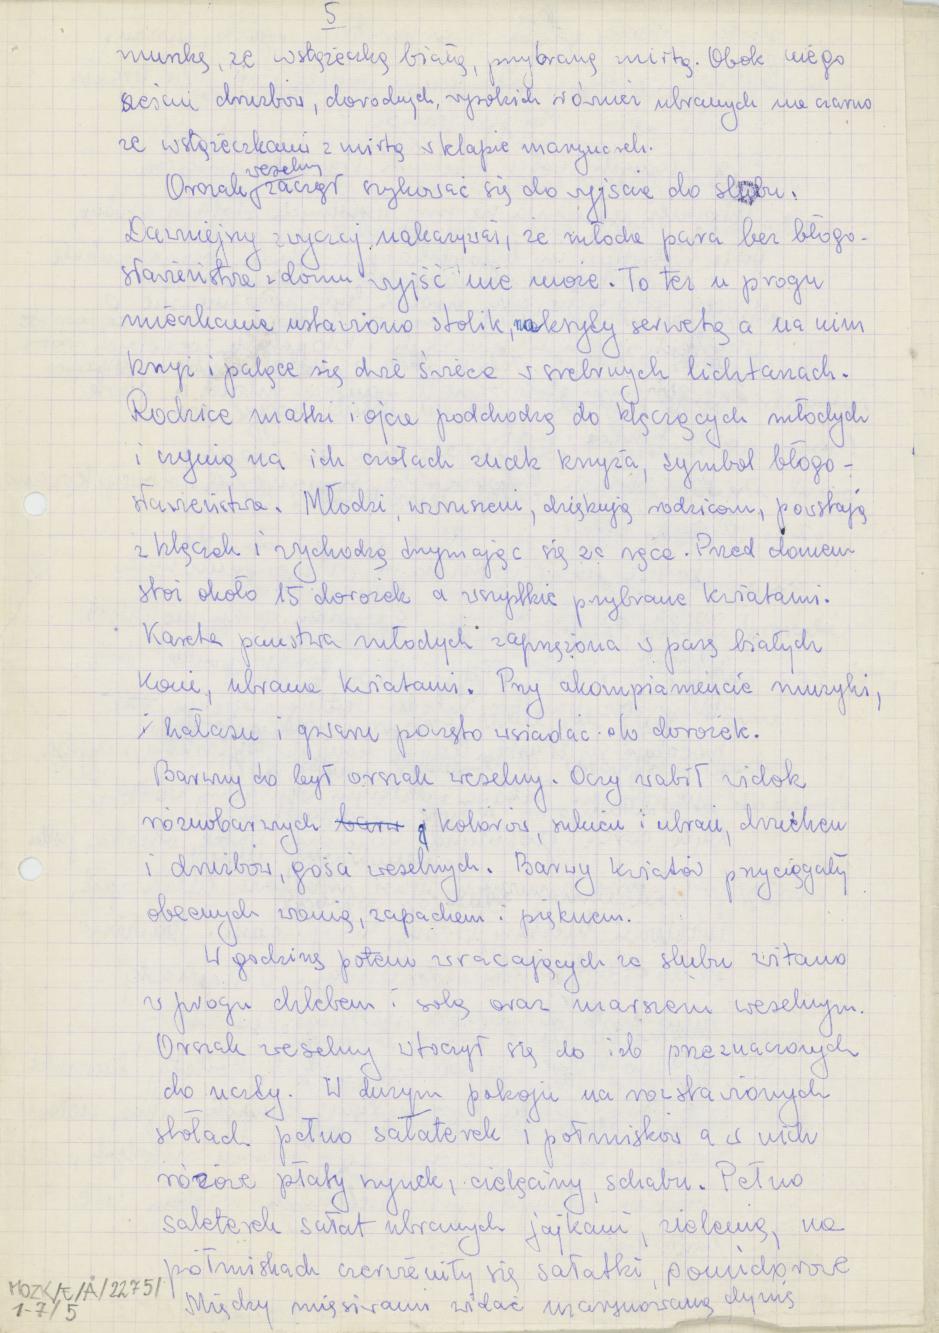 5
muszką, ze wstążeczką białą, przybraną mirtą. Obok niego
sześciu drużbów, dorodnych, wysokich również ubranych na czarno
ze wstążeczkami z mirtą w klapie marynarek.
Orszak weselny zaczął szykować się do wyjścia do ślubu.
Dawniejszy zwyczaj nakazywał, że młoda para bez błogo-
sławieństwa z domu wyjść nie może. To też u progu
mieszkania ustawiono stolik, nakryty serwetą a na nim
krzyż i palące się dwie świece w srebrnych lichtarzach.
Rodzice matki i ojca podchodzą do klęczących młodych
i czynią na ich czołach znak krzyża, symbol błogo-
sławieństwa. Młodzi, wzruszeni, dziękują rodzicom, powstają
z klęczek i wychodzą trzymając się za ręce. Przed domem
stoi około 15 dorożek a wszystkie przybrane kwiatami.
Kareta państwa młodych zaprzężona w parę białych
koni, ubrana kwiatami. Przy akompaniamencie muzyki,
i hałasu i gwaru poczęto wsiadać do dorożek.
Barwny to był orszak weselny. Oczy wabił widok
różnobarwnych kolorów, sukien i ubrań, druhen
i drużbów, gości weselnych. Barwy kwiatów przyciągały
obecnych wonią, zapachem i pięknem.
W godzinę potem wracających ze ślubu witano
w progu chlebem i solą oraz marszem weselnym.
Orszak weselny wtoczył się do izb przeznaczonych
do uczty. W dużym pokoju na rozstawionych
stołach pełno salaterek i półmisków a w nich
różowe płaty szynek, cielęciny, schabu. Pełno
salaterek sałat ubranych jajkami, zielenią, na
półmiskach czerwieniły się sałatki pomidorowe
Między mięsiwami widać marynowaną dynię
MOZK/E/A/2275/
1-7/5